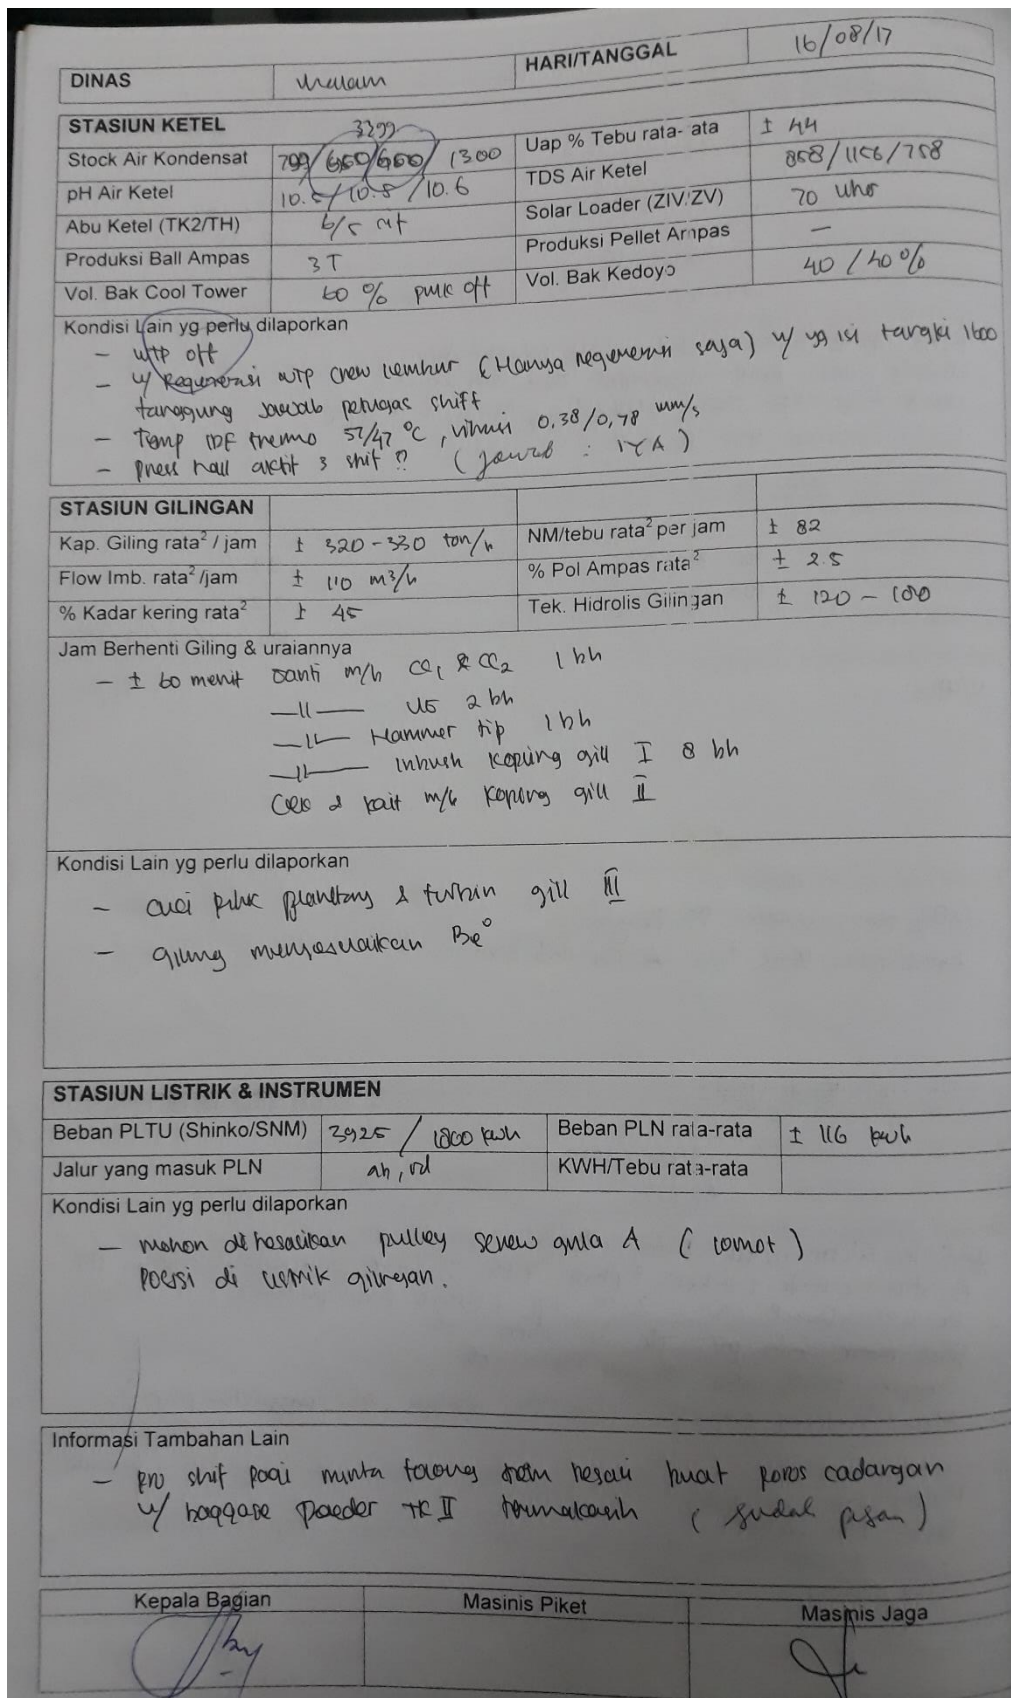 DINAS malam HARI/TANGGAL 16/08/17
STASIUN KETEL
3299
Stock Air Kondensat 799/650/650/1300 Uap % Tebu rata- ata ± 44
pH Air Ketel 10.5/10.8/10.6 TDS Air Ketel 858/1156/758
Abu Ketel (TK2/TH) 6/5 rit Solar Loader (ZIV/ZV) 70
Produksi Ball Ampas 3T Produksi Pellet Ampas —
Vol. Bak Cool Tower 60 % off Vol. Bak Kedoyo 40 / 40 %
Kondisi Lain yg perlu dilaporkan
- WTP off
- u/ Regenerasi WTP crew lembur (Hanya regenerasi saja) u/ yg isi tangki 1600
tanggung jawab petugas shift
- Temp IDF 57/47 °C, vibrasi 0,38/0,78 mm/s
- press ball aktif 3 shif ?? (jawab : IYA)
STASIUN GILINGAN
Kap. Giling rata² / jam ± 320-330 ton/h NM/tebu rata² per jam ± 82
Flow Imb. rata² /jam ± 110 m³/h % Pol Ampas rata² ± 2.5
% Kadar kering rata² ± 45 Tek. Hidrolis Gilingan ± 120 -
Jam Berhenti Giling & uraiannya
- ± 60 menit Ganti m/b CC1 & CC2 1 bh
—॥— U5 2 bh
—॥— Hammer tip 1 bh
—॥— Inbush Kopling gill I 8 bh
Cek & m/b Kopling gill II
Kondisi Lain yg perlu dilaporkan
- cuci planetary & turbin gill III
- giling menyesuaikan Be°
STASIUN LISTRIK & INSTRUMEN
Beban PLTU (Shinko/SNM) 3925 / 1800 kwh Beban PLN rata-rata ± 116 kwh
Jalur yang masuk PLN KWH/Tebu rata-rata
Kondisi Lain yg perlu dilaporkan
- mohon pulley screw gula A
di listrik gilingan.
Informasi Tambahan Lain
- pro shif pagi minta tolong besali buat poros cadangan
u/ baggase TK II terimakasih (sudah pesan)
Kepala Bagian Masinis Piket Masinis Jaga